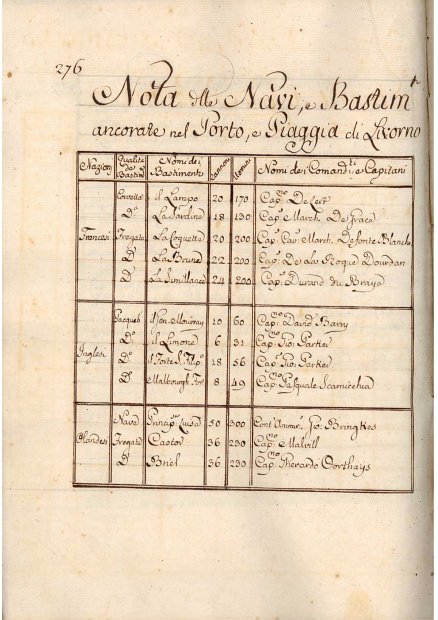 276
Nota delle Navi, e Bastim.ti
ancorate nel Porto, e Piaggia di Livorno
Nazioni Qualità de Bastim. Nomi dei Bastimenti Cannoni Uomini Nomi dei Comand.ti e Capitani
Corvetta il Lampo 20 170 Cap.no
D.a La Sardine 18 130 Cap. March. De Grace
Francesi Fregata La Coquette 20 200 Cap. Cav. March. Defonte Blanche
D.a La Brune 22 200 Cap. De la Roque Dourdan
D.a 24 200 Cap. Durand du Braye
Pacqueb. 10 60 Cap.no David Barry
D.o il Limone 6 31 Cap. Gio. Parker
Inglesi D.o il Forte S. Filip.o 18 56 Cap. Gio. Parker
D.o Malbough 8 49 Cap. Pasquale Scamichia
Nave Princip. Luisa 50 300 Cont'Ammir. Gio. Bringkes
Olandesi Fregata Castor 36 230 Cap.no
D.a Briel 36 230 Cap. Gherardo Oorthays